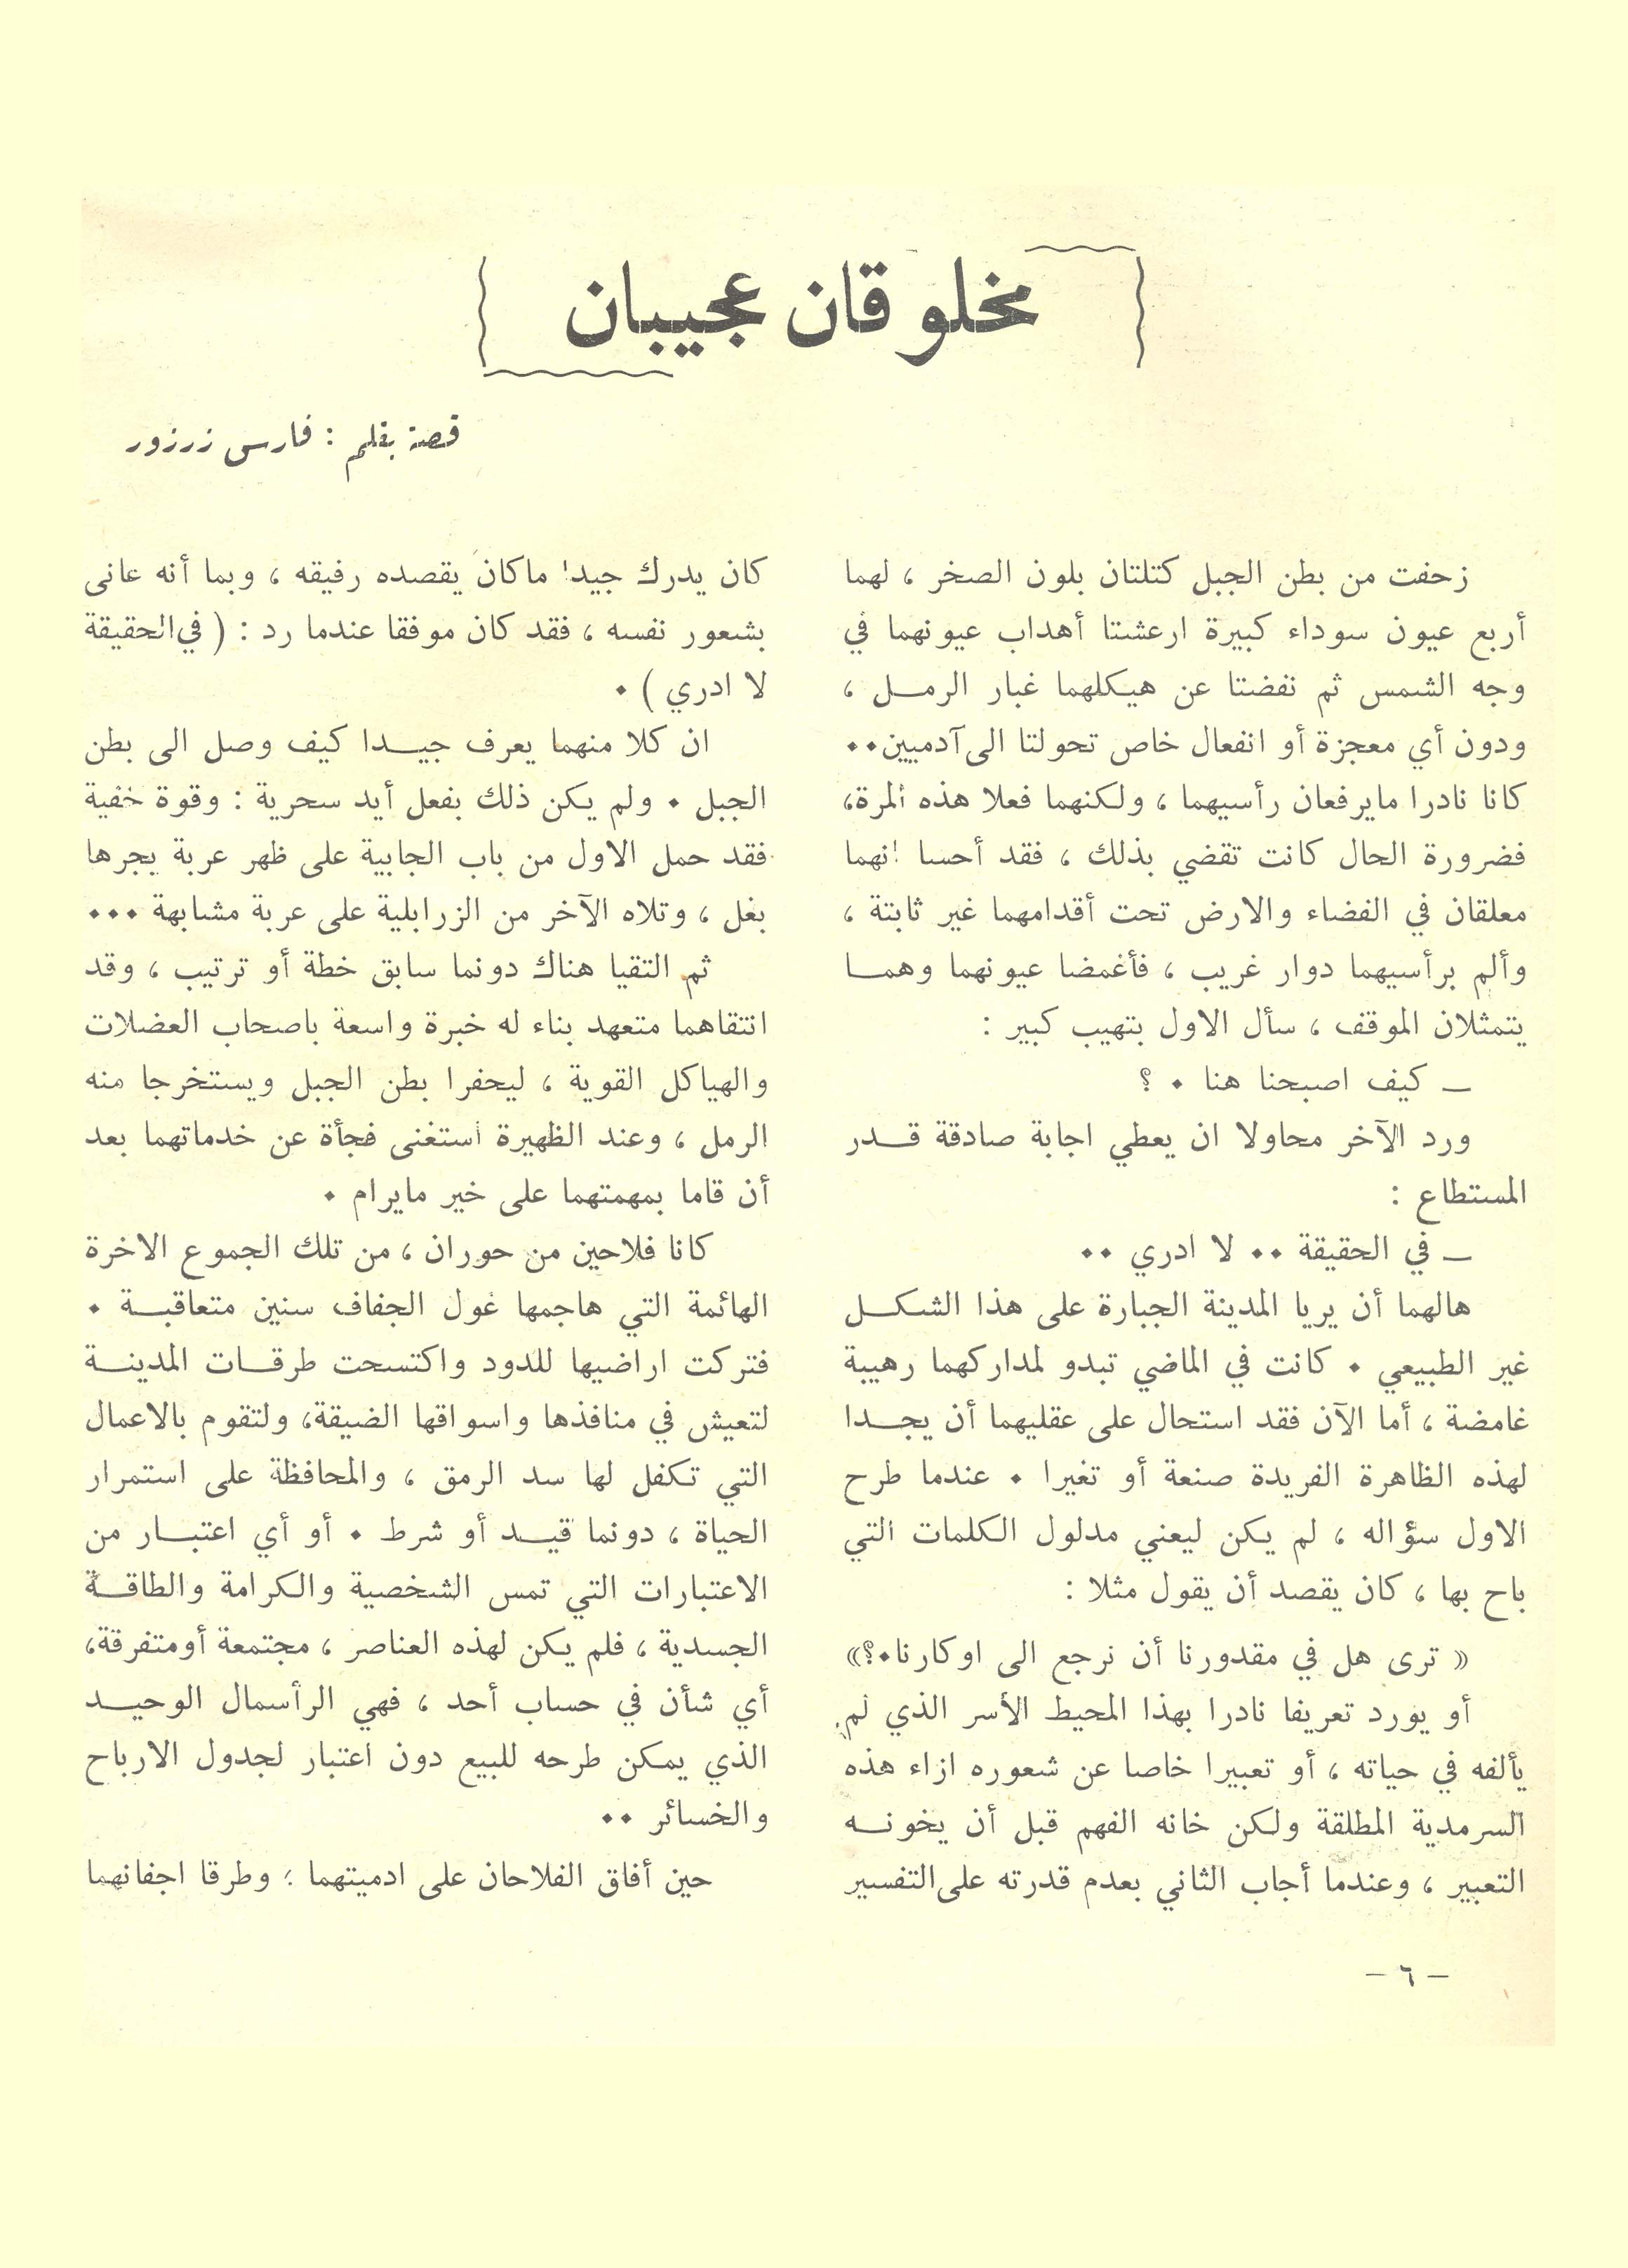 مخلوقان عجيبان
قصة بقلم : فارس زرزور
زحفت من بطن الجبل كتلتان بلون الصخر ، لهما
أربع عيون سوداء كبيرة ارعشتا أهداب عيونهما في
وجه الشمس ثم نفضتا عن هيكلهما غبار الرمل ،
ودون أي معجزة أو انفعال خاص تحولتا الى آدميين..
كانا نادرا مايرفعان رأسيهما ، ولكنهما فعلا هذه المرة،
فضرورة الحال كانت تقضي بذلك ، فقد أحسا انهما
معلقان في الفضاء والارض تحت أقدامهما غير ثابتة ،
وألم برأسيهما دوار غريب ، فأغمضا عيونهما وهما
يتمثلان الموقف ، سأل الاول بتهيب كبير :
ـ كيف اصبحنا هنا . ؟
ورد الآخر محاولا ان يعطي اجابة صادقة قدر
المستطاع :
ـ في الحقيقة .. لا ادري ..
هالهما أن يريا المدينة الجبارة على هذا الشكل
غير الطبيعي . كانت في الماضي تبدو لمداركهما رهيبة
غامضة ، أما الآن فقد استحال على عقليهما أن يجدا
لهذه الظاهرة الفريدة صنعة أو تغيرا . عندما طرح
الاول سؤاله ، لم يكن ليعني مدلول الكلمات التي
باح بها ، كان يقصد أن يقول مثلا :
« ترى هل في مقدورنا أن نرجع الى اوكارنا.؟»
أو يورد تعريفا نادرا بهذا المحيط الأسر الذي لم
يألفه في حياته ، أو تعبيرا خاصا عن شعوره ازاء هذه
السرمدية المطلقة ولكن خانه الفهم قبل أن يخونه
التعبير ، وعندما أجاب الثاني بعدم قدرته على التفسير
كان يدرك جيدا ماكان يقصده رفيقه ، وبما أنه عانى
بشعور نفسه ، فقد كان موفقا عندما رد : ( في الحقيقة
لا ادري ) .
ان كلا منهما يعرف جيدا كيف وصل الى بطن
الجبل . ولم يكن ذلك بفعل أيد سحرية : وقوة خفية
فقد حمل الاول من باب الجابية على ظهر عربة يجرها
بغل ، وتلاه الآخر من الزرابلية على عربة مشابهة ...
ثم التقيا هناك دونما سابق خطة أو ترتيب ، وقد
انتقاهما متعهد بناء له خبرة واسعة باصحاب العضلات
والهياكل القوية ، ليحفرا بطن الجبل ويستخرجا منه
الرمل ، وعند الظهيرة استغنى فجأة عن خدماتهما بعد
أن قاما بمهمتهما على خير مايرام .
كانا فلاحين من حوران ، من تلك الجموع الاخرة
الهائمة التي هاجمها غول الجفاف سنين متعاقبة .
فتركت اراضيها للدود واكتسحت طرقات المدينة
لتعيش في منافذها واسواقها الضيقة، ولتقوم بالاعمال
التي تكفل لها سد الرمق ، والمحافظة على استمرار
الحياة ، دونما قيد أو شرط . أو أي اعتبار من
الاعتبارات التي تمس الشخصية والكرامة والطاقة
الجسدية ، فلم يكن لهذه العناصر ، مجتمعة أومتفرقة،
أي شأن في حساب أحد ، فهي الرأسمال الوحيد
الذي يمكن طرحه للبيع دون اعتبار لجدول الارباح
والخسائر ..
حين أفاق الفلاحان على ادميتهما ؛ وطرقا اجفانهما
ـ ٦ ـ